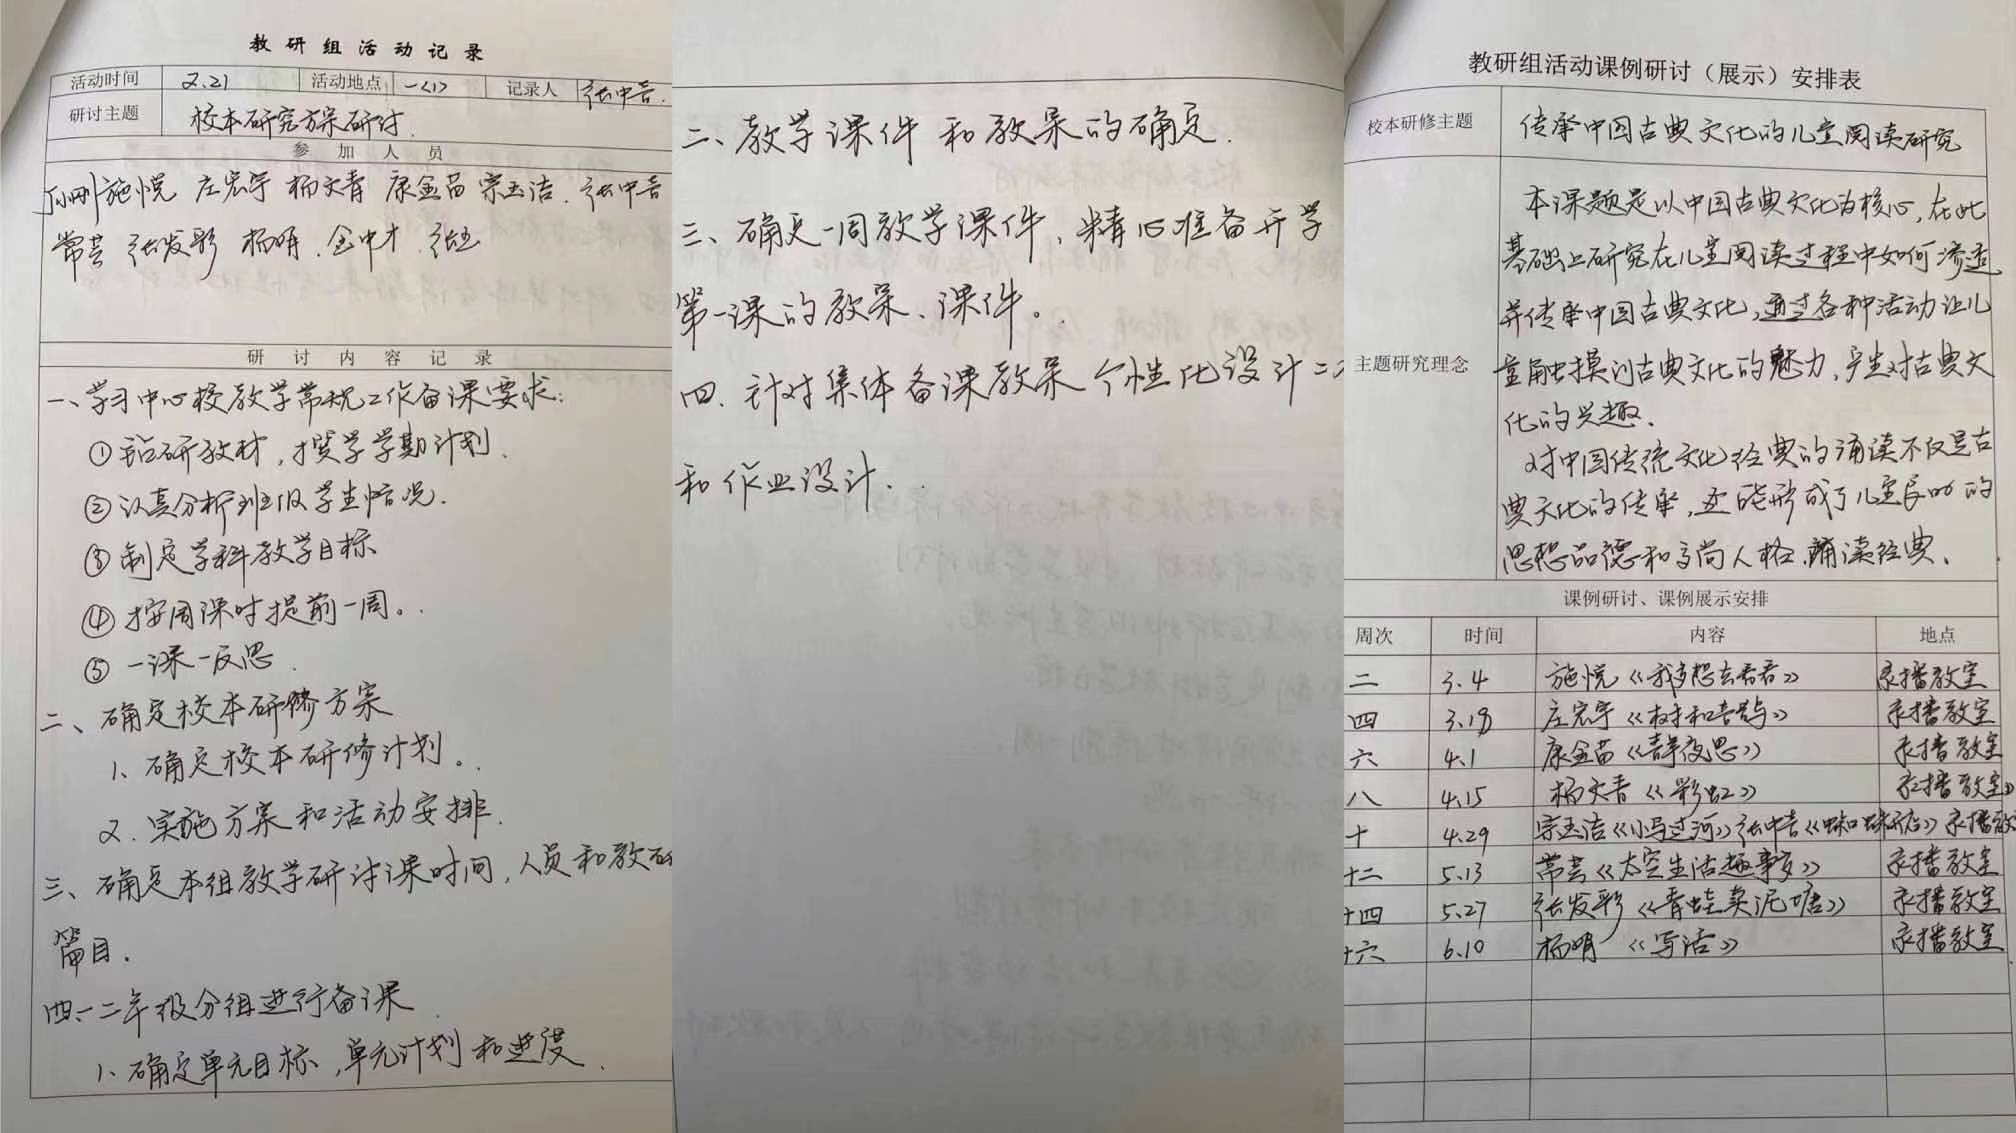 教研组活动记录
活动时间 2.21 活动地点 一〈1〉 记录人 张中音.
研讨主题 校本研究方案研讨.
参加人员
施悦 庄宏宇 杨文青 康金苗 宗玉洁. 张中音
常芸 张发彩 杨明. 金中才.
研讨内容记录
一、学习中心校教学常规工作备课要求:
①钻研教材,撰写学期计划.
②认真分析班级学生情况.
③制定学科教学目标
④按周课时提前一周。
⑤一课一反思.
二、确定校本研修方案
1、确定校本研修计划。
2.实施方案和活动安排.
三、确定本组教学研讨课时间,人员和教研
篇目.
四、一二年级分组进行备课
1、确定单元目标,单元计划和进度.
二、教学课件和教案的确定.
三、确定一周教学课件,精心准备开学
第一课的教案、课件。
四.针对集体备课教案个性化设计二次
和作业设计.
教研组活动课例研讨(展示)安排表
校本研修主题 传承中国古典文化的儿童阅读研究
主题研究理念
本课题是以中国古典文化为核心,在此
基础上研究在儿童阅读过程中如何渗透
并传承中国古典文化,通过各种活动让儿
童触摸到古典文化的魅力,产生对古典文
化的兴趣.
对中国传统文化经典的诵读不仅是古
典文化的传承,还能形成了儿童良好的
思想品德和高尚人格.诵读经典、
课例研讨、课例展示安排
周次 时间 内容 地点
二 3.4 施悦《我多想去看看》 录播教室
四 3.18 庄宏宇《树和喜鹊》 录播教室
六 4.1 康金苗《静夜思》 录播教室
八 4.15 杨文青《彩虹》 录播教室
十 4.29 宗玉洁《小马过河》张中音《蜘蛛开店》 录播教室
十二 5.13 常芸《太空生活趣事多》 录播教室
十四 5.27 张发彩《青蛙卖泥塘》 录播教室
十六 6.10 杨明 《写话》 录播教室